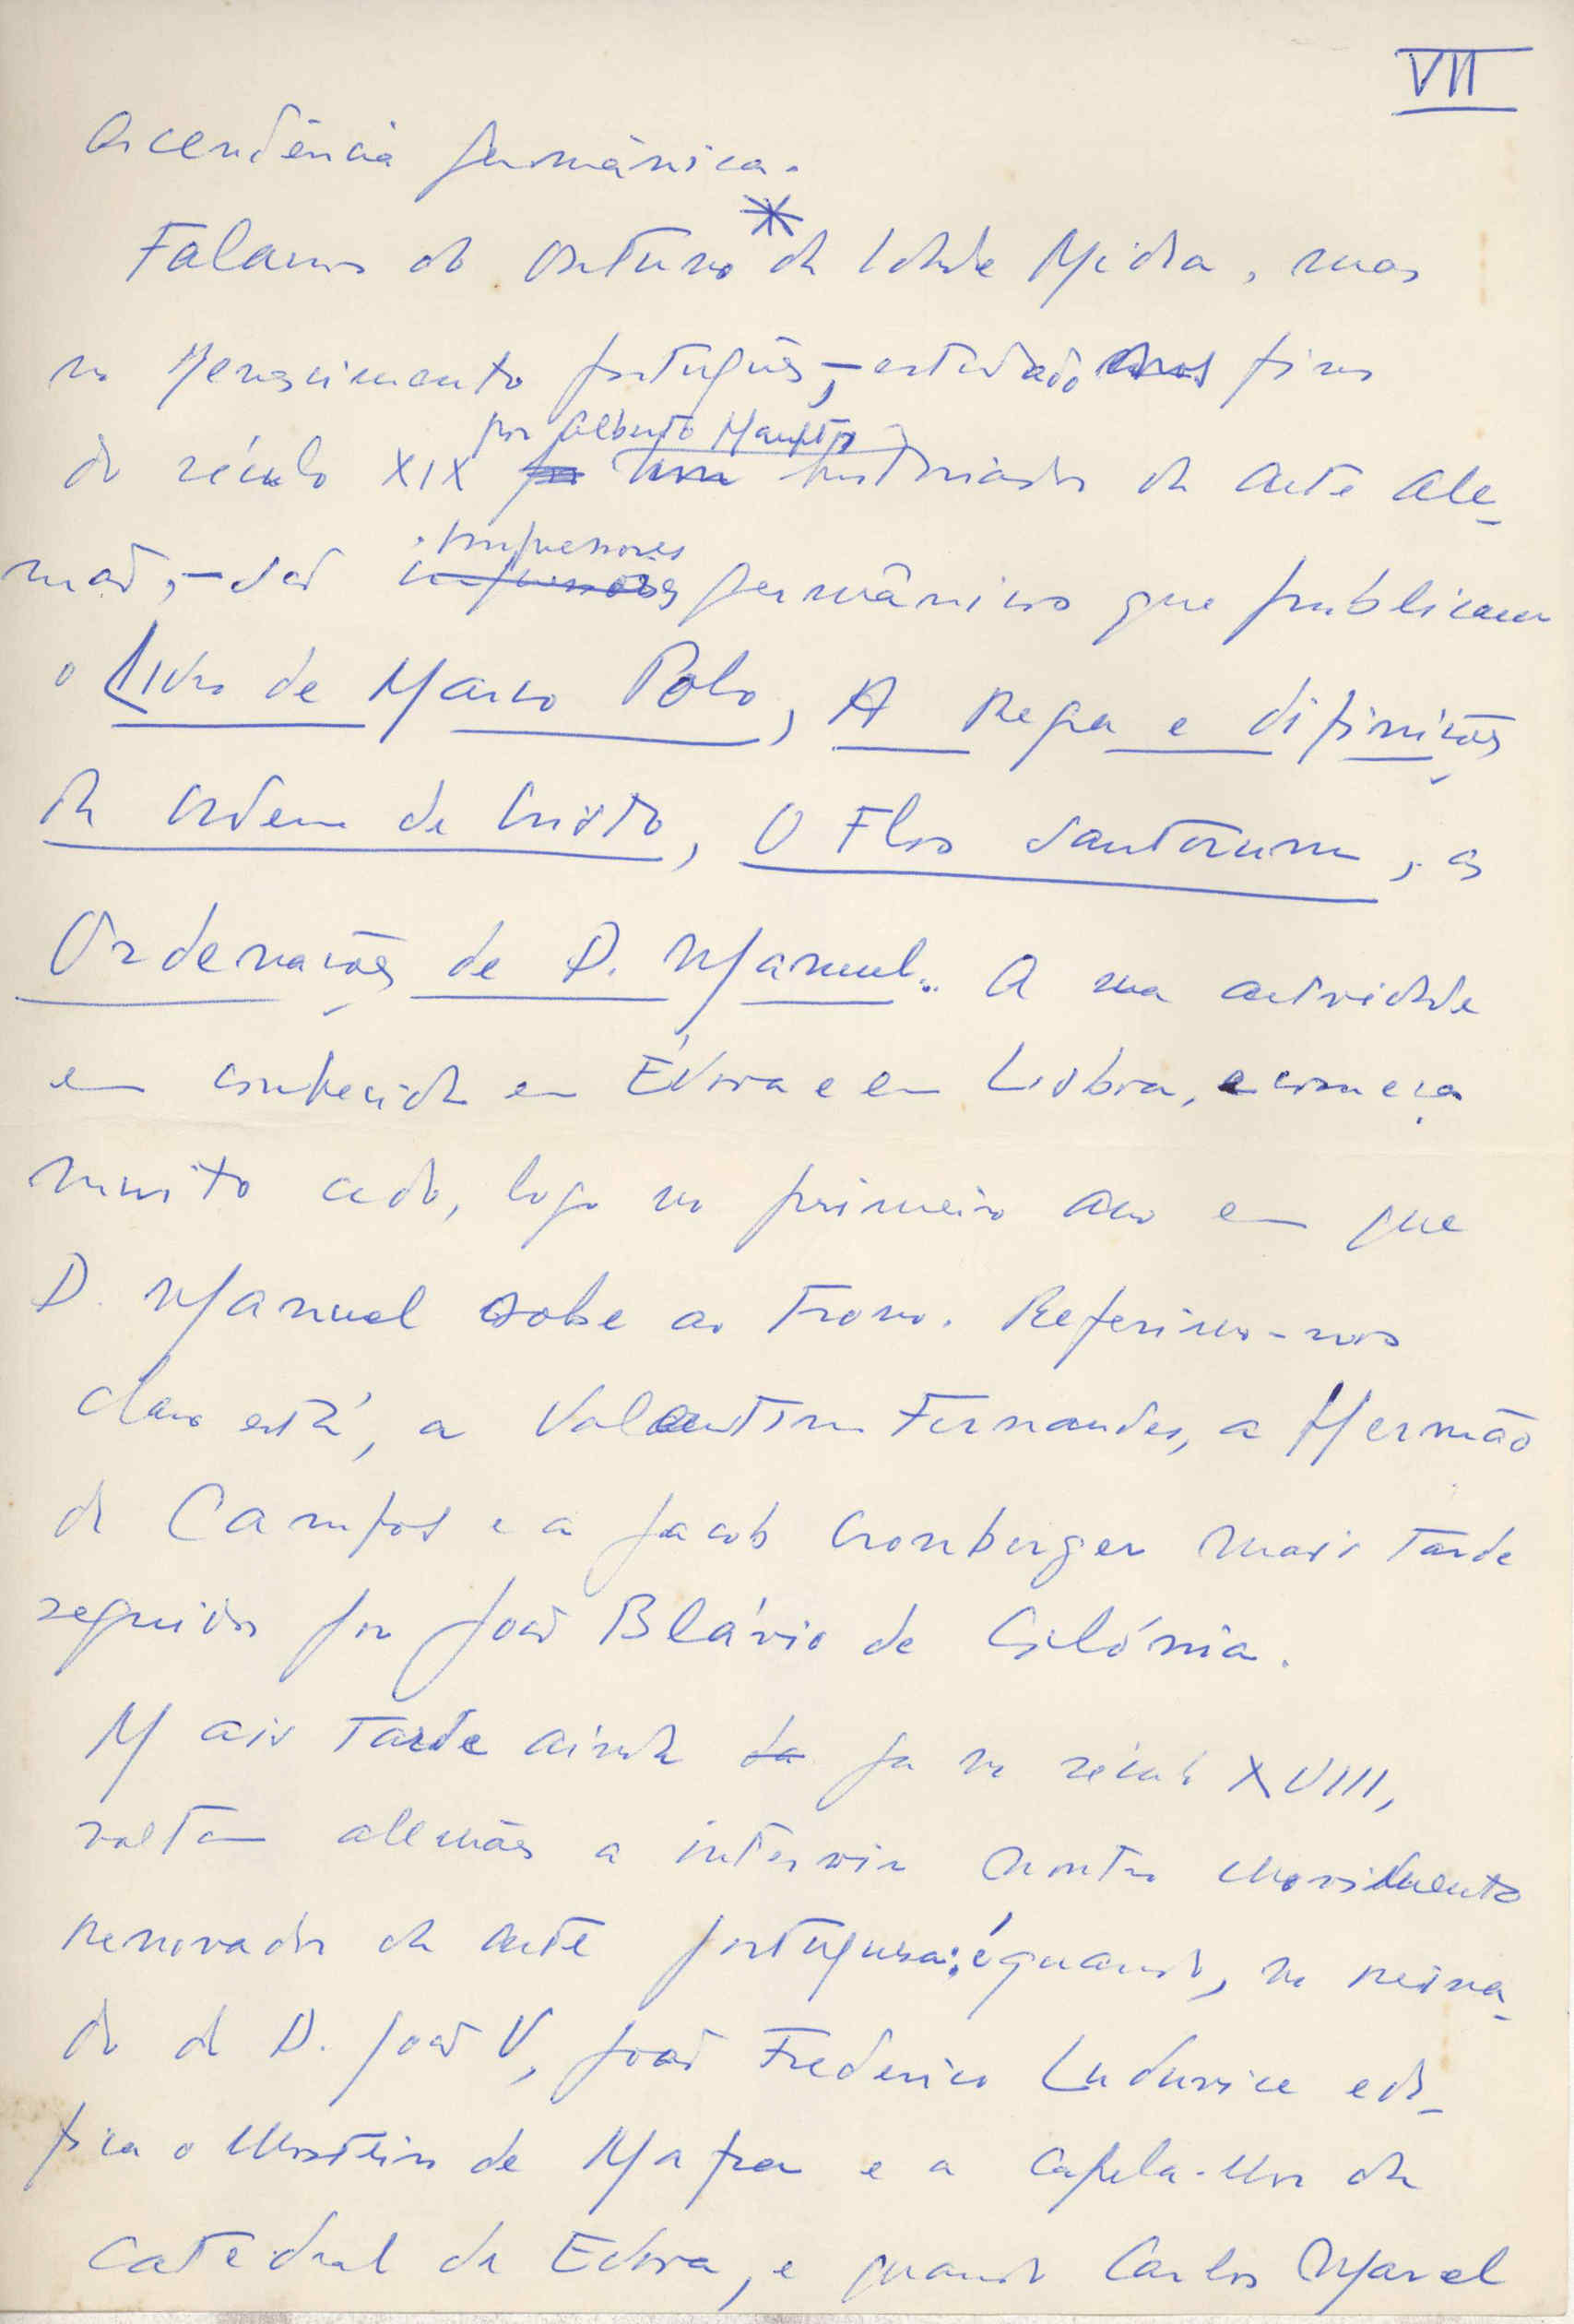 VII
Ascendência germânica.
*
Falamos do Outuno da Idade Média, mas
no Renascimento português, — estudado nos fins
por Alberto Haupt
do século XIX por um historiador da arte ale-
mão, — são impressores
impressores germânicos que publicam
o Livro de Marco Polo, A Regra e difinições
da Ordem de Cristo, O Flos Santorum, as
Ordenações de D. Manuel.. A sua actividade
em conhecida em Évora e em Lisboa, e começa
muito cedo, logo no primeiro ano em que
D. Manuel sobe ao Trono. Referimo-nos
claro está, a Valentim Fernandes, a Hermão
de Campos e a Jacob Cronberger mais tarde
seguidos por João Blávio de Colónia.
Mais tarde ainda da ja no século XVIII,
voltam alemães a intervir noutro movimento
renovador da arte portuguesa: é quando, no reina-
do de D. João V, João Frederico Ludovice edi-
fica o Mosteiro de Mafra e a Capela-Mor da
Catedral de Evora, e quando Carlos Mardel